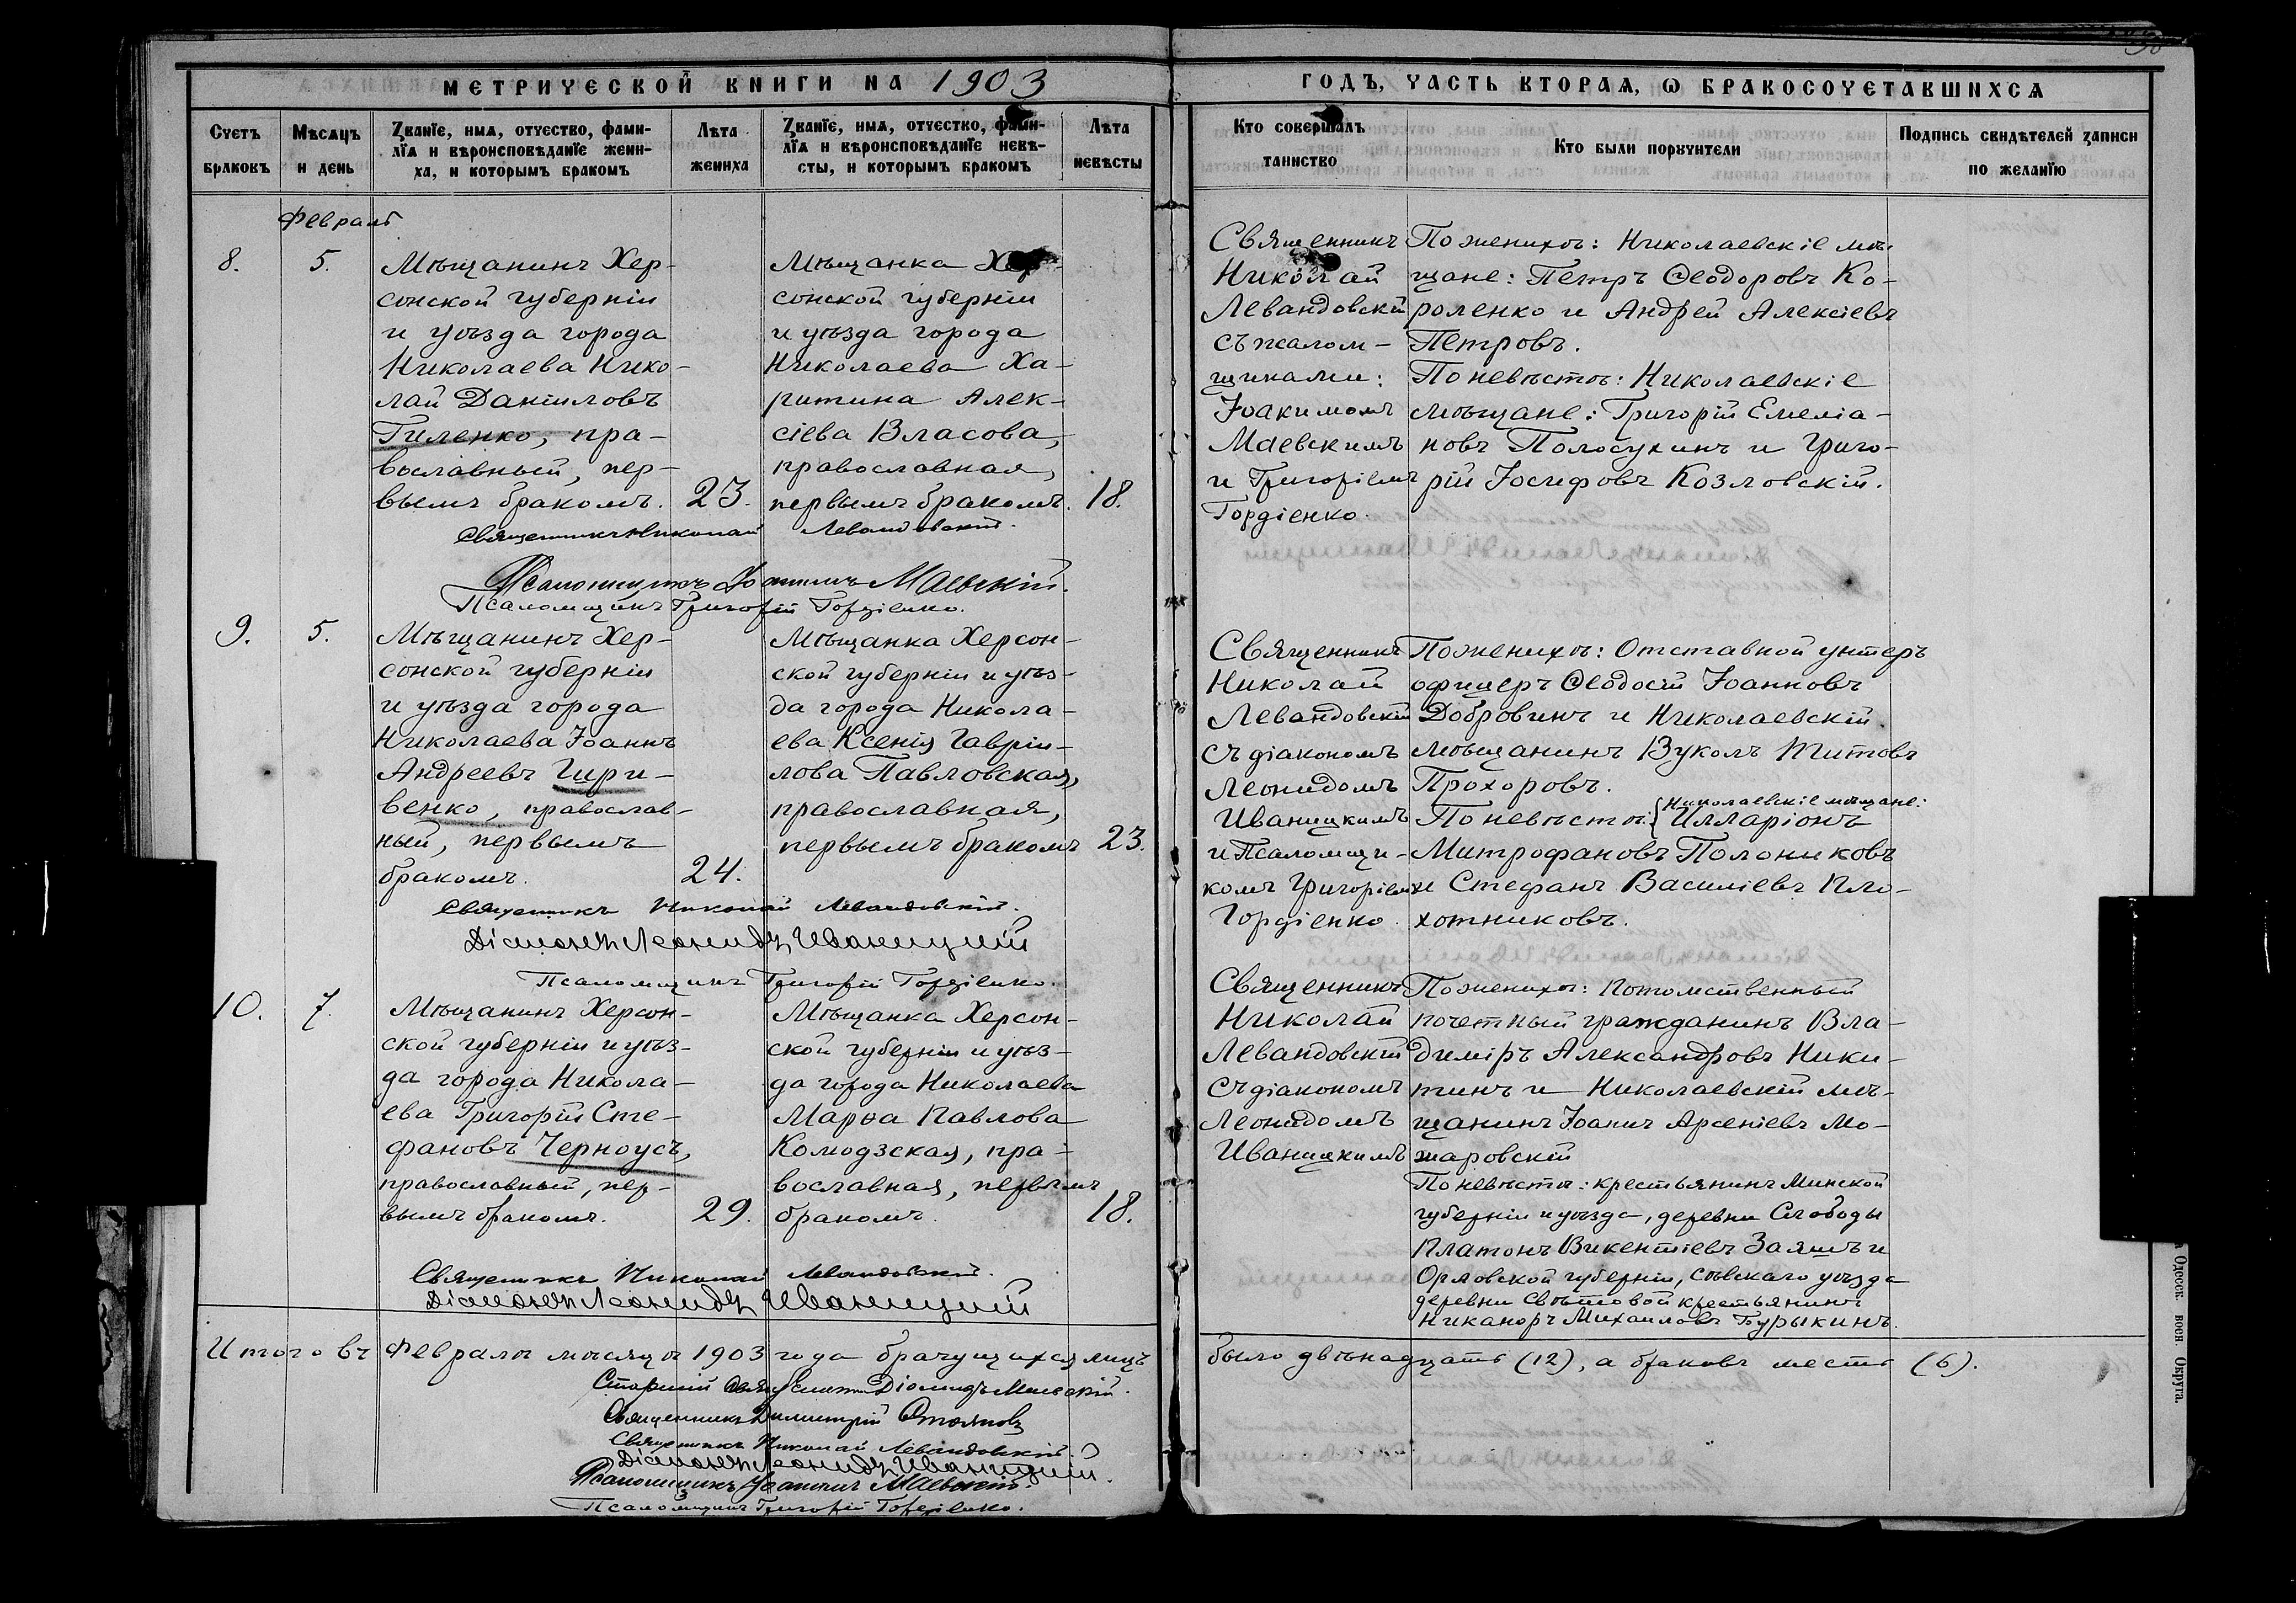 МЕТРИЧЕСКОЙ КНИГИ НА 1903
ГОДЪ, ЧАСТЬ ВТОРАѦ, Ѡ БРАКОСОЧЕТАВШИХСѦ
Счетъ
браковъ
Мѣсѧцъ
и день
Званїе, имѧ, отчество, фами-
лїѧ и вѣроисповѣданїе жени-
ха, и которымъ бракомъ
Лѣта
жениха
Званїе, имѧ, отчество, фами-
лїѧ и вѣроисповѣданїе невѣ-
сты, и которымъ бракомъ
Лѣта
невѣсты
Кто совершалъ
таинство
Кто были порꙋчители
Подпись свидѣтелей записи
по желанїю
Февраль
8.
5.
Мѣщанинъ Хер-
сонской губерніи
и уѣзда города
Николаева Нико-
лай Даніиловъ
Гиленко, пра-
вославный, пер-
вымъ бракомъ.
23.
Мѣщанка Хер-
сонской губерніи
и уѣзда города
Николаева Ха-
ритина Алек-
сіева Власова,
православная,
первымъ бракомъ.
18.
Священникъ
Николай
Левандовскій
съ псалом-
щиками:
Іоакимомъ
Маевскимъ
и Григоріемъ
Гордіенко.
По женихѣ: Николаевскіе мѣ-
щане: Петръ Ѳеодоровъ Ко-
роленко и Андрей Алексіевъ
Петровъ.
По невѣстѣ: Николаевскіе
мѣщане: Григорій Емеліа-
новъ Полосухинъ и Григо-
рій Іосифовъ Козловскій.
Священникъ Николай Левандовскій.
Псаломщикъ Іоакимъ Маевскій.
Псаломщикъ Григорій Гордіенко.
9.
5.
Мѣщанинъ Хер-
сонской губерніи
и уѣзда города
Николаева Іоаннъ
Андреевъ Гири-
венко, православ-
ный, первымъ
бракомъ.
24.
Мѣщанка Херсон-
ской губерніи и уѣз-
да города Никола-
ева Ксенія Гавріи-
лова Павловская,
православная,
первымъ бракомъ
23.
Священникъ
Николай
Левандовскій
съ діакономъ
Леонидомъ
Иваницкимъ
и Псаломщи-
комъ Григоріемъ
Гордіенко.
По женихѣ: Отставной унтеръ
офицеръ Ѳеодосій Іоанновъ
Добровинъ и Николаевскій
мѣщанинъ Вуколъ Титовъ
Прохоровъ.
По невѣстѣ: { Николаевскіе мѣщане:
Илларіонъ
Митрофановъ Полониковъ
и Стефанъ Василіевъ Пло-
хотниковъ.
Священникъ Николай Левандовскій.
Діаконъ Леонидъ Иваницкій
Псаломщикъ Григорій Гордіенко.
10.
7.
Мѣщанинъ Херсон-
ской губерніи и уѣз-
да города Никола-
ева Григорій Сте-
фановъ Черноусъ,
православный, пер-
вымъ бракомъ.
29.
Мѣщанка Херсон-
ской губерніи и уѣз-
да города Николаева
Марѳа Павлова
Комодзская, пра-
вославная, первымъ
бракомъ.
18.
Священникъ
Николай
Левандовскій
съ діакономъ
Леонидомъ
Иваницкимъ
По женихѣ: Потомственный
почетный гражданинъ Вла-
диміръ Александровъ Ники-
тинъ и Николаевскій мѣ-
щанинъ Іоаннъ Арсеніевъ Мо-
жаровскій
По невѣстѣ: крестьянинъ Минской
губерніи и уѣзда, деревни Слободы
Платонъ Викентіевъ Заяшъ и
Орловской губерніи, Сѣвскаго уѣзда
деревни Свѣтовой крестьянинъ
Никаноръ Михаиловъ Бурыкинъ.
Священникъ Николай Левандовскій.
Діаконъ Леонидъ Иваницкій
Итого въ Февралѣ мѣсяцѣ 1903 года брачущихся лицъ было двѣнадцать (12), а браковъ шесть (6).
Старшій Священникъ Діомидъ Маевскій.
Священникъ Димитрій Стояновъ
Священникъ Николай Левандовскій.
Діаконъ Леонидъ Иваницкій.
Псаломщикъ Іоакимъ Маевскій.
Псаломщикъ Григорій Гордіенко.
Одесск. воен. Округа.